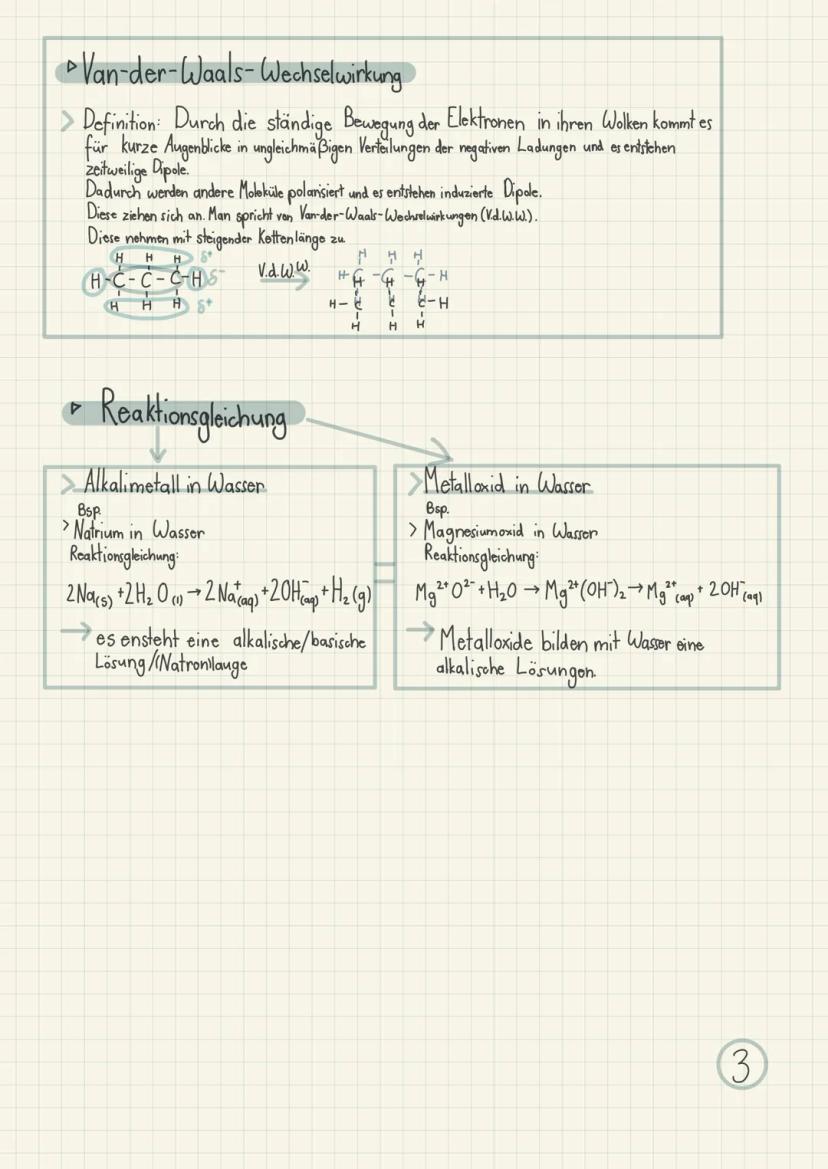 Van-der-Waals-Wechselwirkung
Definition: Durch die ständige Bewegung der Elektronen in ihren Wolken kommt es
für kurze Augenblicke in ungleichmäßigen Verteilungen der negativen Ladungen und es entstehen
zeitweilige Dipole.
Dadurch werden andere Moleküle polarisiert und es entstehen induzierte Dipole.
Diese ziehen sich an. Man spricht von Van-der-Waals-Wechselwirkungen (V.d.W.W.).
Diese nehmen mit steigender Kettenlänge zu
H H H δ+
H-C-C-C-H δ-
H H H δ+
V.d.W.W.
H H H
H-C-C-C-H
H H H
H-C C C-H
H H H
Reaktionsgleichung
Alkalimetall in Wasser
Bsp.
> Natrium in Wasser
Reaktionsgleichung:
2Na(s) + 2H₂O(l) → 2Na⁺(aq) + 2OH⁻(aq) + H₂(g)
→ es ensteht eine alkalische/basische
Lösung/(Natron)lauge
Metalloxid in Wasser
Bsp.
> Magnesiumoxid in Wasser
Reaktionsgleichung:
Mg²⁺O²⁻ + H₂O → Mg²⁺(OH⁻)₂ → Mg²⁺(aq) + 2OH⁻(aq)
→ Metalloxide bilden mit Wasser eine
alkalische Lösungen.
3